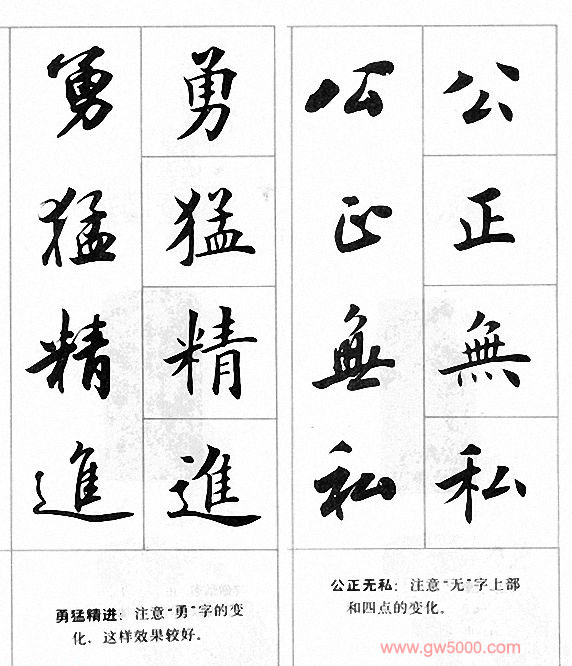 公正無私
公正無私
勇猛精進
勇猛精進
公正无私：注意“无”字上部
和四点的变化。
勇猛精进：注意“勇”字的变
化，这样效果较好。
www.gw5000.com